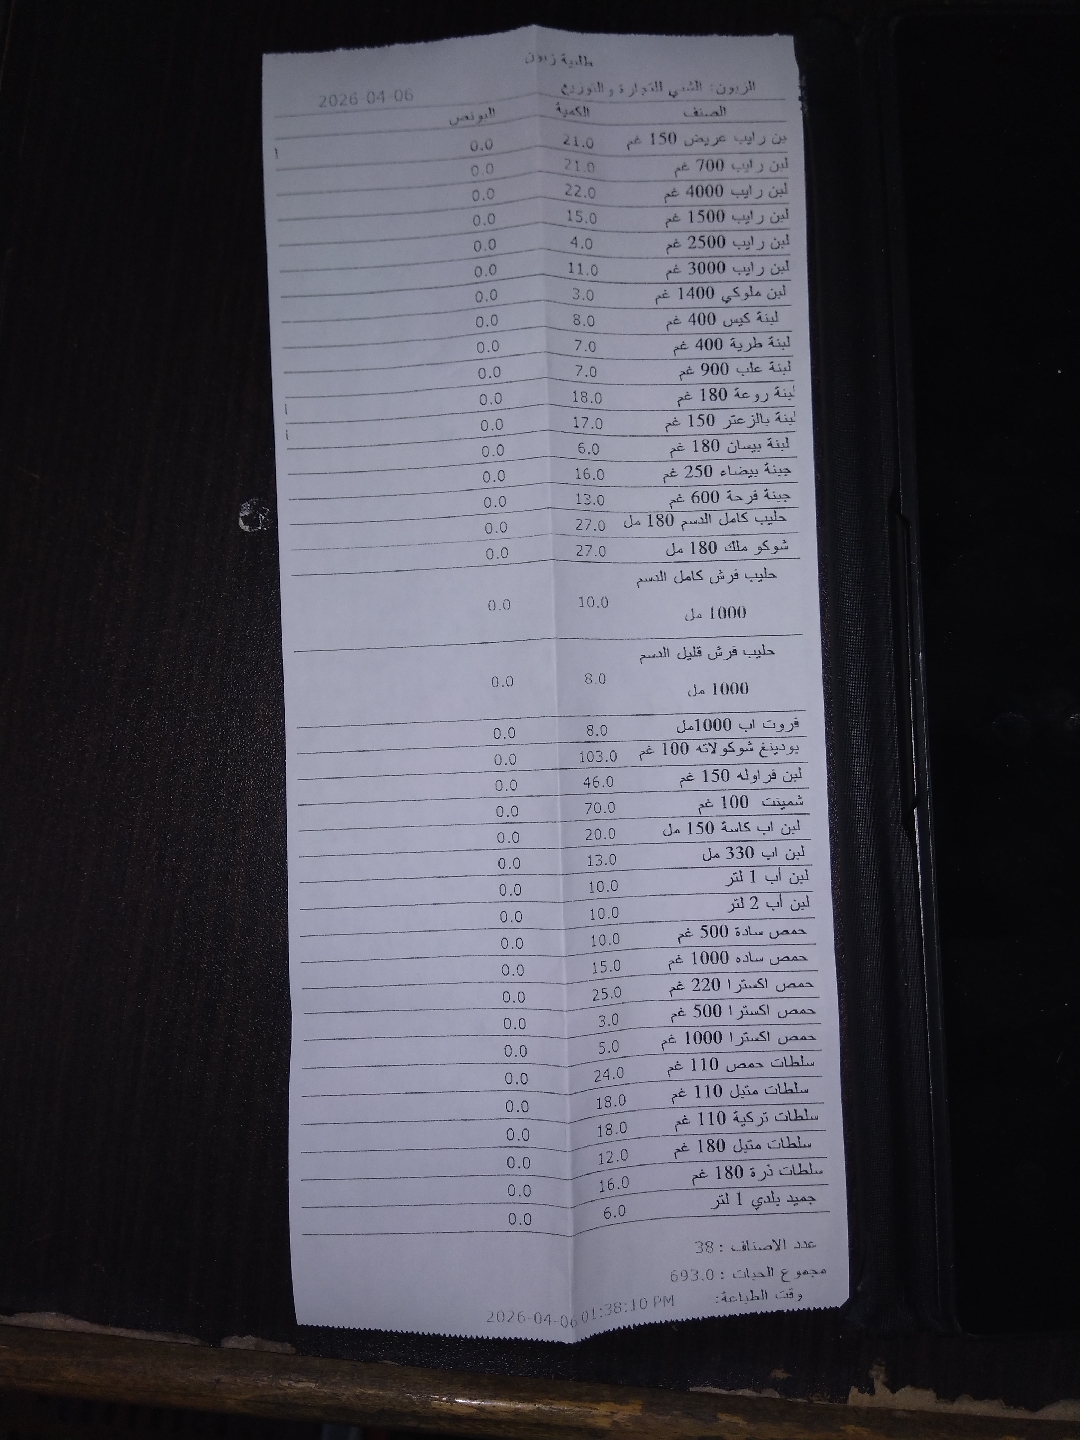 طلبية زبون
الزبون: الشني للتجارة والتوزيع 2026-04-06
الصنف الكمية البونص
بن رايب عريض 150 غم 21.0 0.0
لبن رايب 700 غم 21.0 0.0
لبن رايب 4000 غم 22.0 0.0
لبن رايب 1500 غم 15.0 0.0
لبن رايب 2500 غم 4.0 0.0
لبن رايب 3000 غم 11.0 0.0
لبن ملوكي 1400 غم 3.0 0.0
لبنة كيس 400 غم 8.0 0.0
لبنة طرية 400 غم 7.0 0.0
لبنة علب 900 غم 7.0 0.0
لبنة روعة 180 غم 18.0 0.0
لبنة بالزعتر 150 غم 17.0 0.0
لبنة بيسان 180 غم 6.0 0.0
جبنة بيضاء 250 غم 16.0 0.0
جبنة فرحة 600 غم 13.0 0.0
حليب كامل الدسم 180 مل 27.0 0.0
شوكو ملك 180 مل 27.0 0.0
حليب فرش كامل الدسم
1000 مل 10.0 0.0
حليب فرش قليل الدسم
1000 مل 8.0 0.0
فروت اب 1000مل 8.0 0.0
بودينغ شوكولاته 100 غم 103.0 0.0
لبن فراوله 150 غم 46.0 0.0
شمينت 100 غم 70.0 0.0
لبن اب كاسة 150 مل 20.0 0.0
لبن اب 330 مل 13.0 0.0
لبن أب 1 لتر 10.0 0.0
لبن أب 2 لتر 10.0 0.0
حمص سادة 500 غم 10.0 0.0
حمص ساده 1000 غم 15.0 0.0
حمص اكسترا 220 غم 25.0 0.0
حمص اكسترا 500 غم 3.0 0.0
حمص اكسترا 1000 غم 5.0 0.0
سلطات حمص 110 غم 24.0 0.0
سلطات متبل 110 غم 18.0 0.0
سلطات تركية 110 غم 18.0 0.0
سلطات متبل 180 غم 12.0 0.0
سلطات ذرة 180 غم 16.0 0.0
جميد بلدي 1 لتر 6.0 0.0
عدد الاصناف : 38
مجموع الحبات : 693.0
وقت الطباعة: 2026-04-06 01:38:10 PM